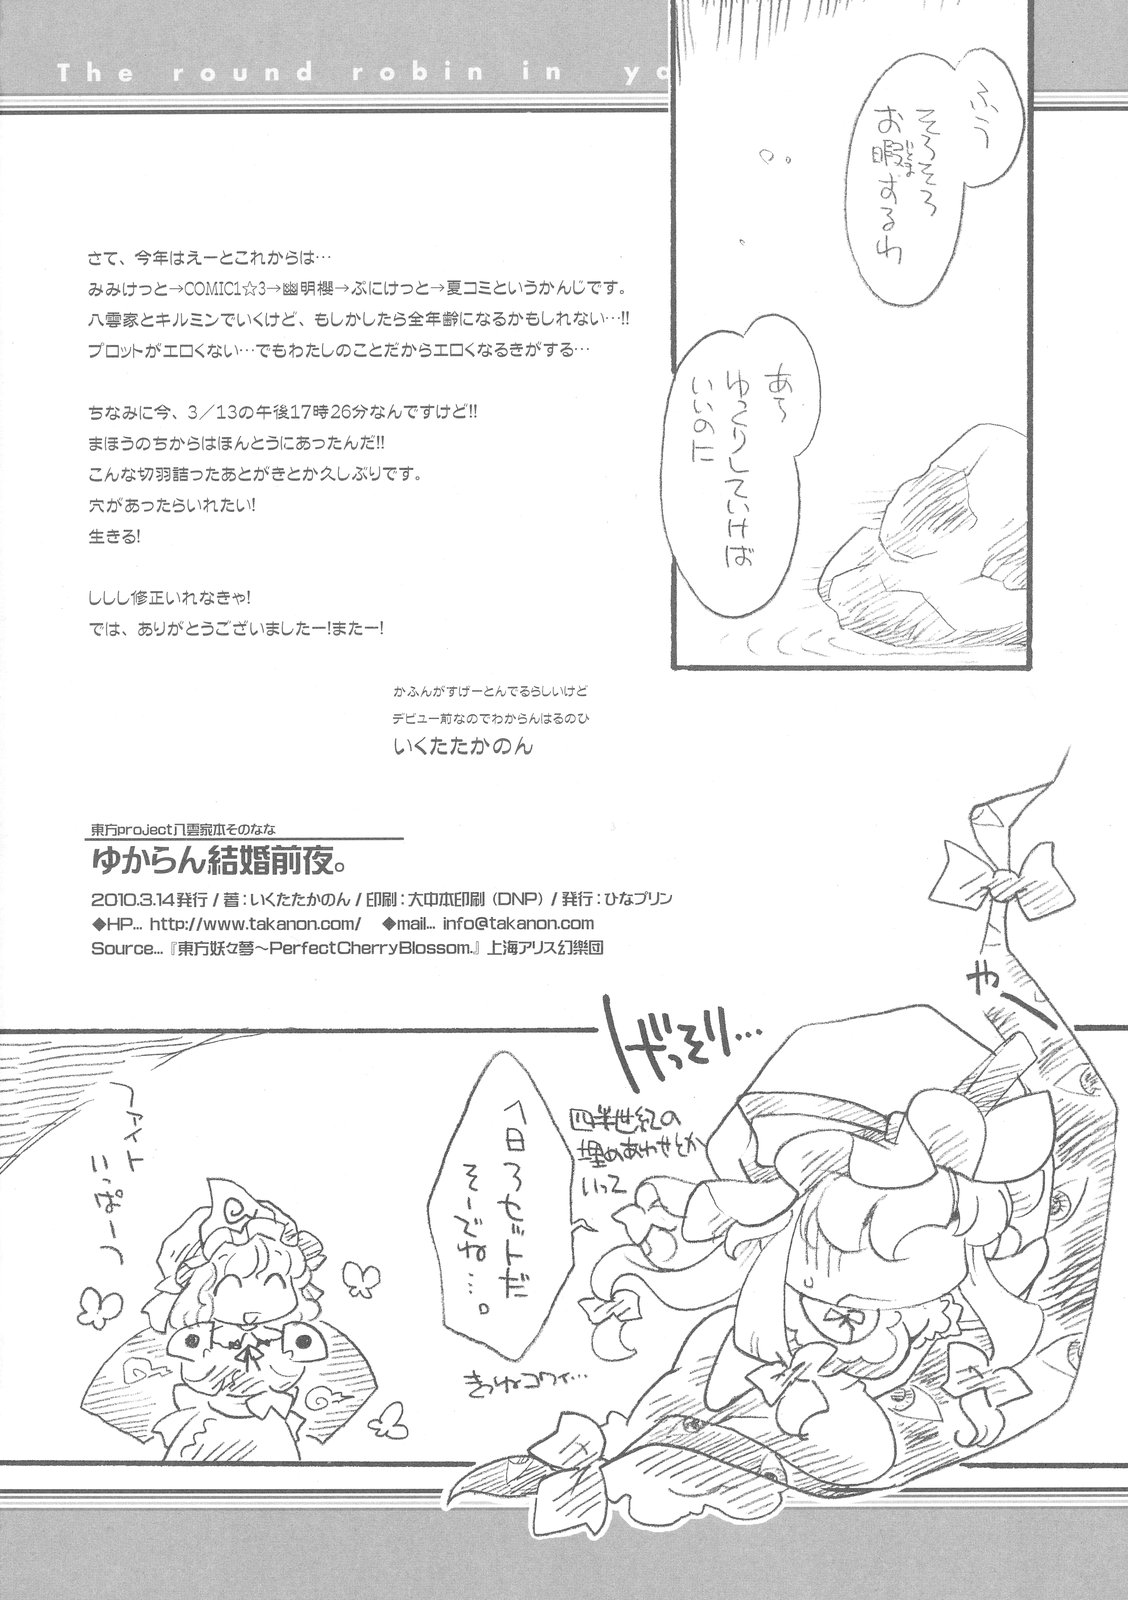 The round robin in ya
ふう
そろそろ
お暇するわ
いとま
あら
ゆっくりしていけば
いいのに
さて、今年はえーとこれからは…
みみけっと→COMIC1☆3→幽明櫻→ぷにけっと→夏コミというかんじです。
八雲家とキルミンでいくけど、もしかしたら全年齢になるかもしれない…!!
プロットがエロくない…でもわたしのことだからエロくなるきがする…
ちなみに今、3/13の午後17時26分なんですけど!!
まほうのちからはほんとうにあったんだ!!
こんな切羽詰ったあとがきとか久しぶりです。
穴があったらいれたい!
生きる!
ししし修正いれなきゃ!
では、ありがとうございましたー!またー!
かふんがすげーとんでるらしいけど
デビュー前なのでわからんはるのひ
いくたたかのん
東方project八雲家本そのなな
ゆからん結婚前夜。
2010.3.14発行 / 著:いくたたかのん / 印刷:大中本印刷 (DNP) / 発行:ひなプリン
◆HP... http://www.takanon.com/ ◆mail... info@takanon.com
Source...『東方妖々夢～PerfectCherryBlossom.』上海アリス幻樂団
や
げっそり…
四半世紀の
埋めあわせとか
いって
1日3セットだ
そーでね…。
きつねコワイ…
ファイト
いっぱーつ